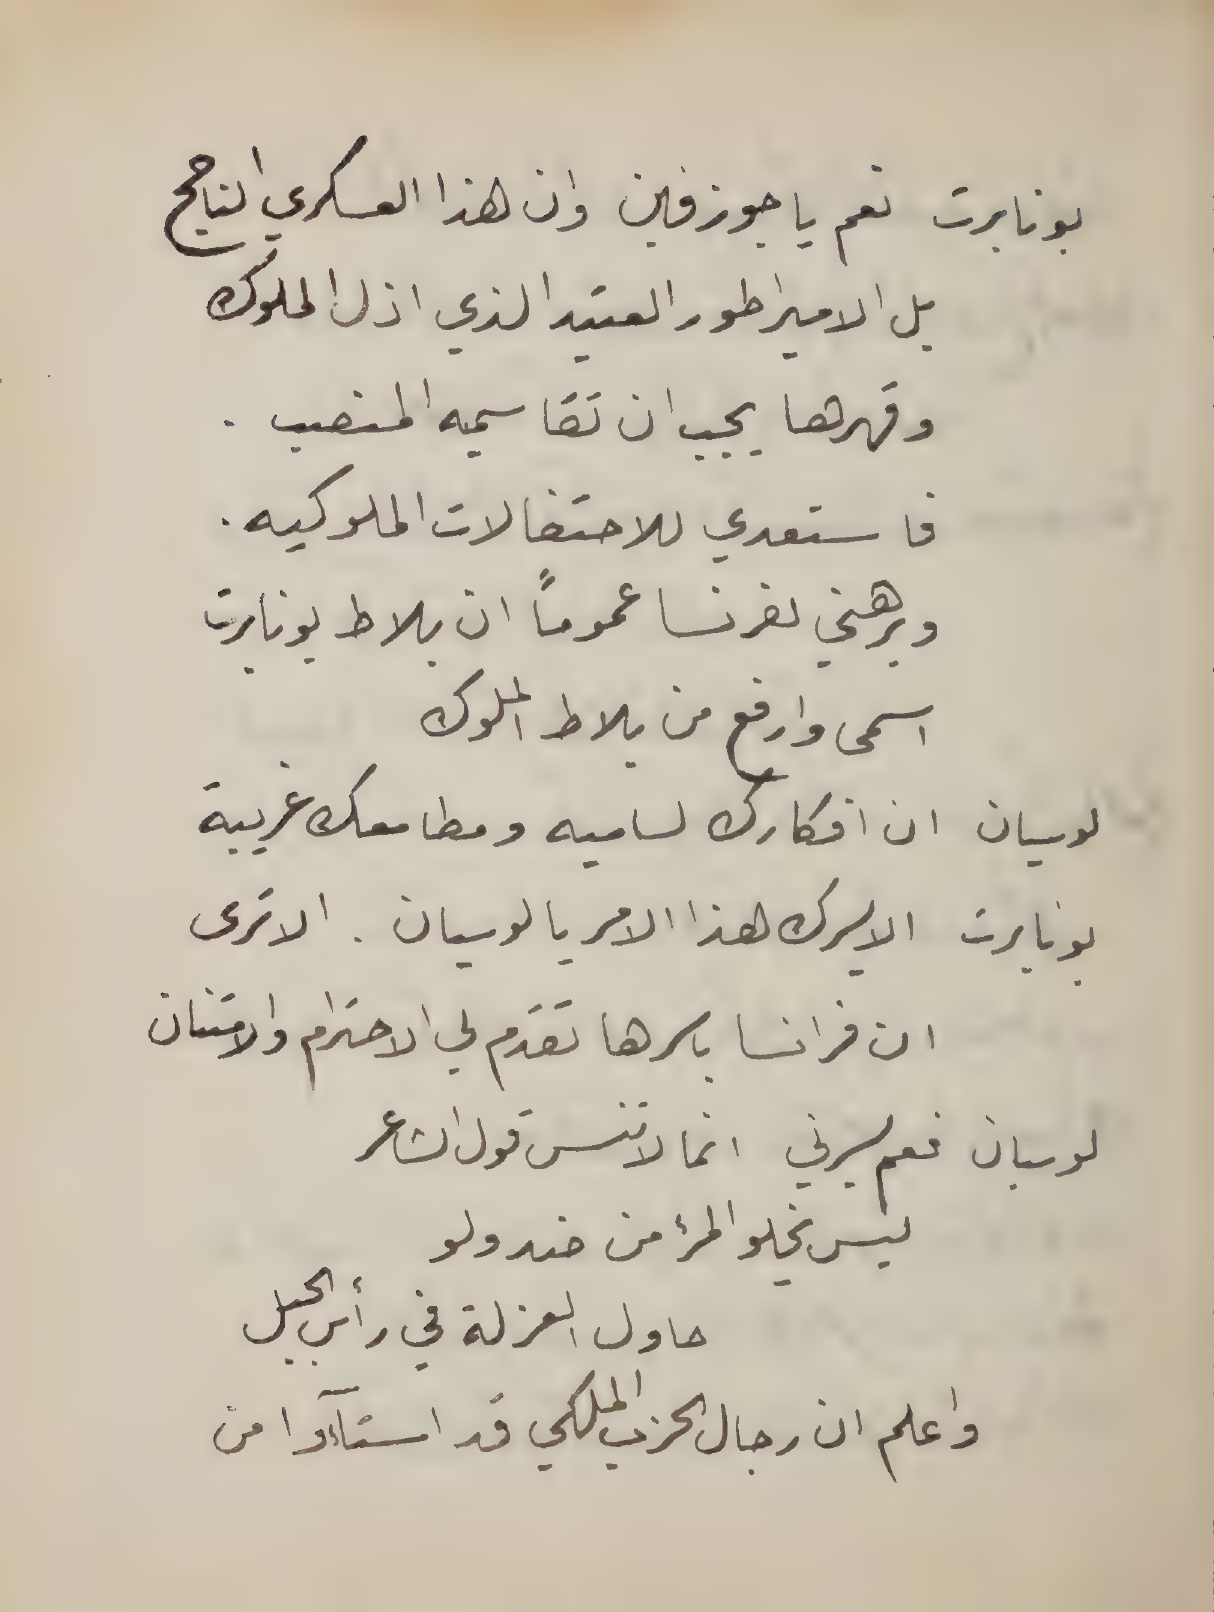 بونابرت نعم يا جوزفين وان هذا العسكري الناجح
بل الامبراطور العتيد الذي اذل الملوك
وقهرها يجب ان تقاسميه المنصب .
فاستعدي للاحتفالات الملوكيه .
وبرهني لفرنسا عموماً ان بلاط بونابرت
اسمى وارفع من بلاط الملوك
لوسيان ان افكارك لساميه ومطامعك غريبة
بونابرت الا يسرك هذا الامر يا لوسيان . الا ترى
ان فرانسا باسرها تقدم لي الاحترام والامتنان
لوسيان نعم يسرني انما لا تنس قول الشاعر
ليس يخلو المرؤ من ضد ولو
حاول العزلة في رأس الجبل
واعلم ان رجال الحزب الملكي قد استآءوا من